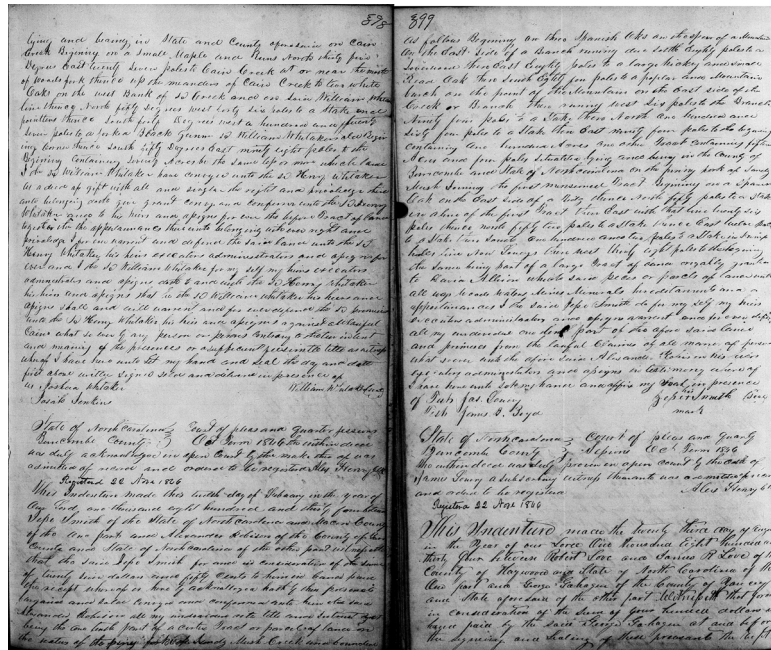 398
lying and being in State and County aforesaid on Cain
Creek Begining on a Small Maple and Runs North thirty five
Degrees East twenty Seven poles to Cain Creek at or near the mouth
thence up the meanders of Cain Creek to two white
Oaks on the west Bank of Sd Creek and on said William
line thence North fifty degrees west sixty six poles to a stake and
pointers thence South fifty Degrees west a hundred and
Seven poles to a Black Gum Sd William Whitaker
line thence South fifty Degrees East ninety eight poles to the
Begining Containing Seventy Acres be the same up or more which land
I the Sd William Whitaker have conveyed unto the Sd Henry Whitaker
as a deed of gift with all and singlar the right and priviledge there
unto belonging doth give grant convey and confirm unto the Sd Henry
Whitaker and to his heirs and assigns for ever the before Tract of land
together with the appertainances there unto belonging with every right and
priviledge I for ever warrent and defend the said land unto the Sd
Henry Whitaker his heirs executors administrators and assigns for
ever and I the Sd William Whitaker for my self my heirs executors
administrators and assigns doth to and with the Sd Henry Whitaker
his heirs and assigns that I the Sd William Whitaker his heirs and
assigns shall and will warrent and for ever defend the Sd premises
unto the Sd Henry Whitaker his heirs and assigns against all lawful
Claim what so ever of any person or persons Contrary to the true intent
and meaning of the presents
whereof I have here unto set my hand and seal the day and date
first above written Signed Seald and delivered in presence of
us. Joshua Whitaker William Whitaker Seal
Josiah Jenkins
State of North Carolina } Court of pleas and quarter sessions
Buncombe County } Oct Term 1846 the within deed
was duly acknowledged in open Court by the maker thereof was
admitted of record and ordered to be registered Alex Henry Clk
Registered 22 Nov 1846
This Indenture made this tenth day of February in the year of
our Lord one thousand eight hundred and thirty four between
Zepe Smith of the State of North Carolina and Macon County
of the one part and Alexander Robison of the County of
and State of North Carolina of the other part
that the said Zepe Smith for and in consideration of the sum
of twenty six dollars and fifty Cents to him in hand paid
the receipt whereof is here by acknowledged hath by these presents
bargaind and sold conveyed and confirmed unto him the said
Alexander Robison all my undivided
being the one tenth part of a certain Tract or parcel of land on
the waters of the piney fork of Sandy Mush Creek and bounded
399
as follows Begining on three Spanish Oaks on the spur of a Mountain
On the East side of a Branch runing due south Eighty poles to a
Sourwood then East Eighty poles to a large Hickory and small
Read Oak then South Eighty four poles to a poplar and Mountain
burch on the point of the Mountain on the East side of the
Creek or Branch then runing west Six poles to the Branch
Ninty four poles to a Stake then North one hundred and
Sixty four poles to a Stake then East ninety four poles to the begining
containing one hundred Acres and other Tract containing fifteen
Acres and four poles Situated lying and being in the County of
Buncombe and State of North carolina on the piney fork of Sandy
Mush Joining the first mentioned Tract Begining on a Spanish
Oak on the East side of a thence North fifty poles to a Stake
in a line of the first Tract then East with that line twenty six
poles thence north fifty two poles to a Stake thence East twelve poles
to a Stake then South One hundred and two poles to a Stake in
line Now then west thirty Eight poles to the begining
the same being part of a large Tract of land originally granted
to David Allison which said peices or parcels of land with
all ways woods waters Mines Minerals hereditaments and
appertainances I the said Zepe Smith do for my self my heirs
Executors Administrators and assigns warrent and for ever defend
all my undivided one tenth part of the afore said land
and premises from the lawful Claimes of all maner of persons
what soever unto the afore said Alexander Robison his heirs
executors administrators and assigns in testimony whereof
I have here unto Set my hand and affix my Seal in presence
of Test Jas Lowry Zepe Smith Seal
Test James G. Boyd mark
State of North carolina } Court of pleas and quarter
Buncombe County } Sessions Oct Term 1846
The within deed was duly proven in open court by the oath of
James Lowry a Subscribing witness thereunto was admitted of record
and ordered to be registered Alex Henry Clk
Registered 22 Nov 1846
This Indenture made the twenty third day of
in the Year of our Lord One thousand Eight hundred and
thirty four between Robert Love and James R Love of the
County of Haywood and State of North Carolina of the
One part and George Gahagen of the County of Yancey
and State aforesaid of the other part Witnesseth that for and
in consideration of the Sum of four hundred dollars
paid by the said George Gahagen at and before
the signing and sealing of these presents the